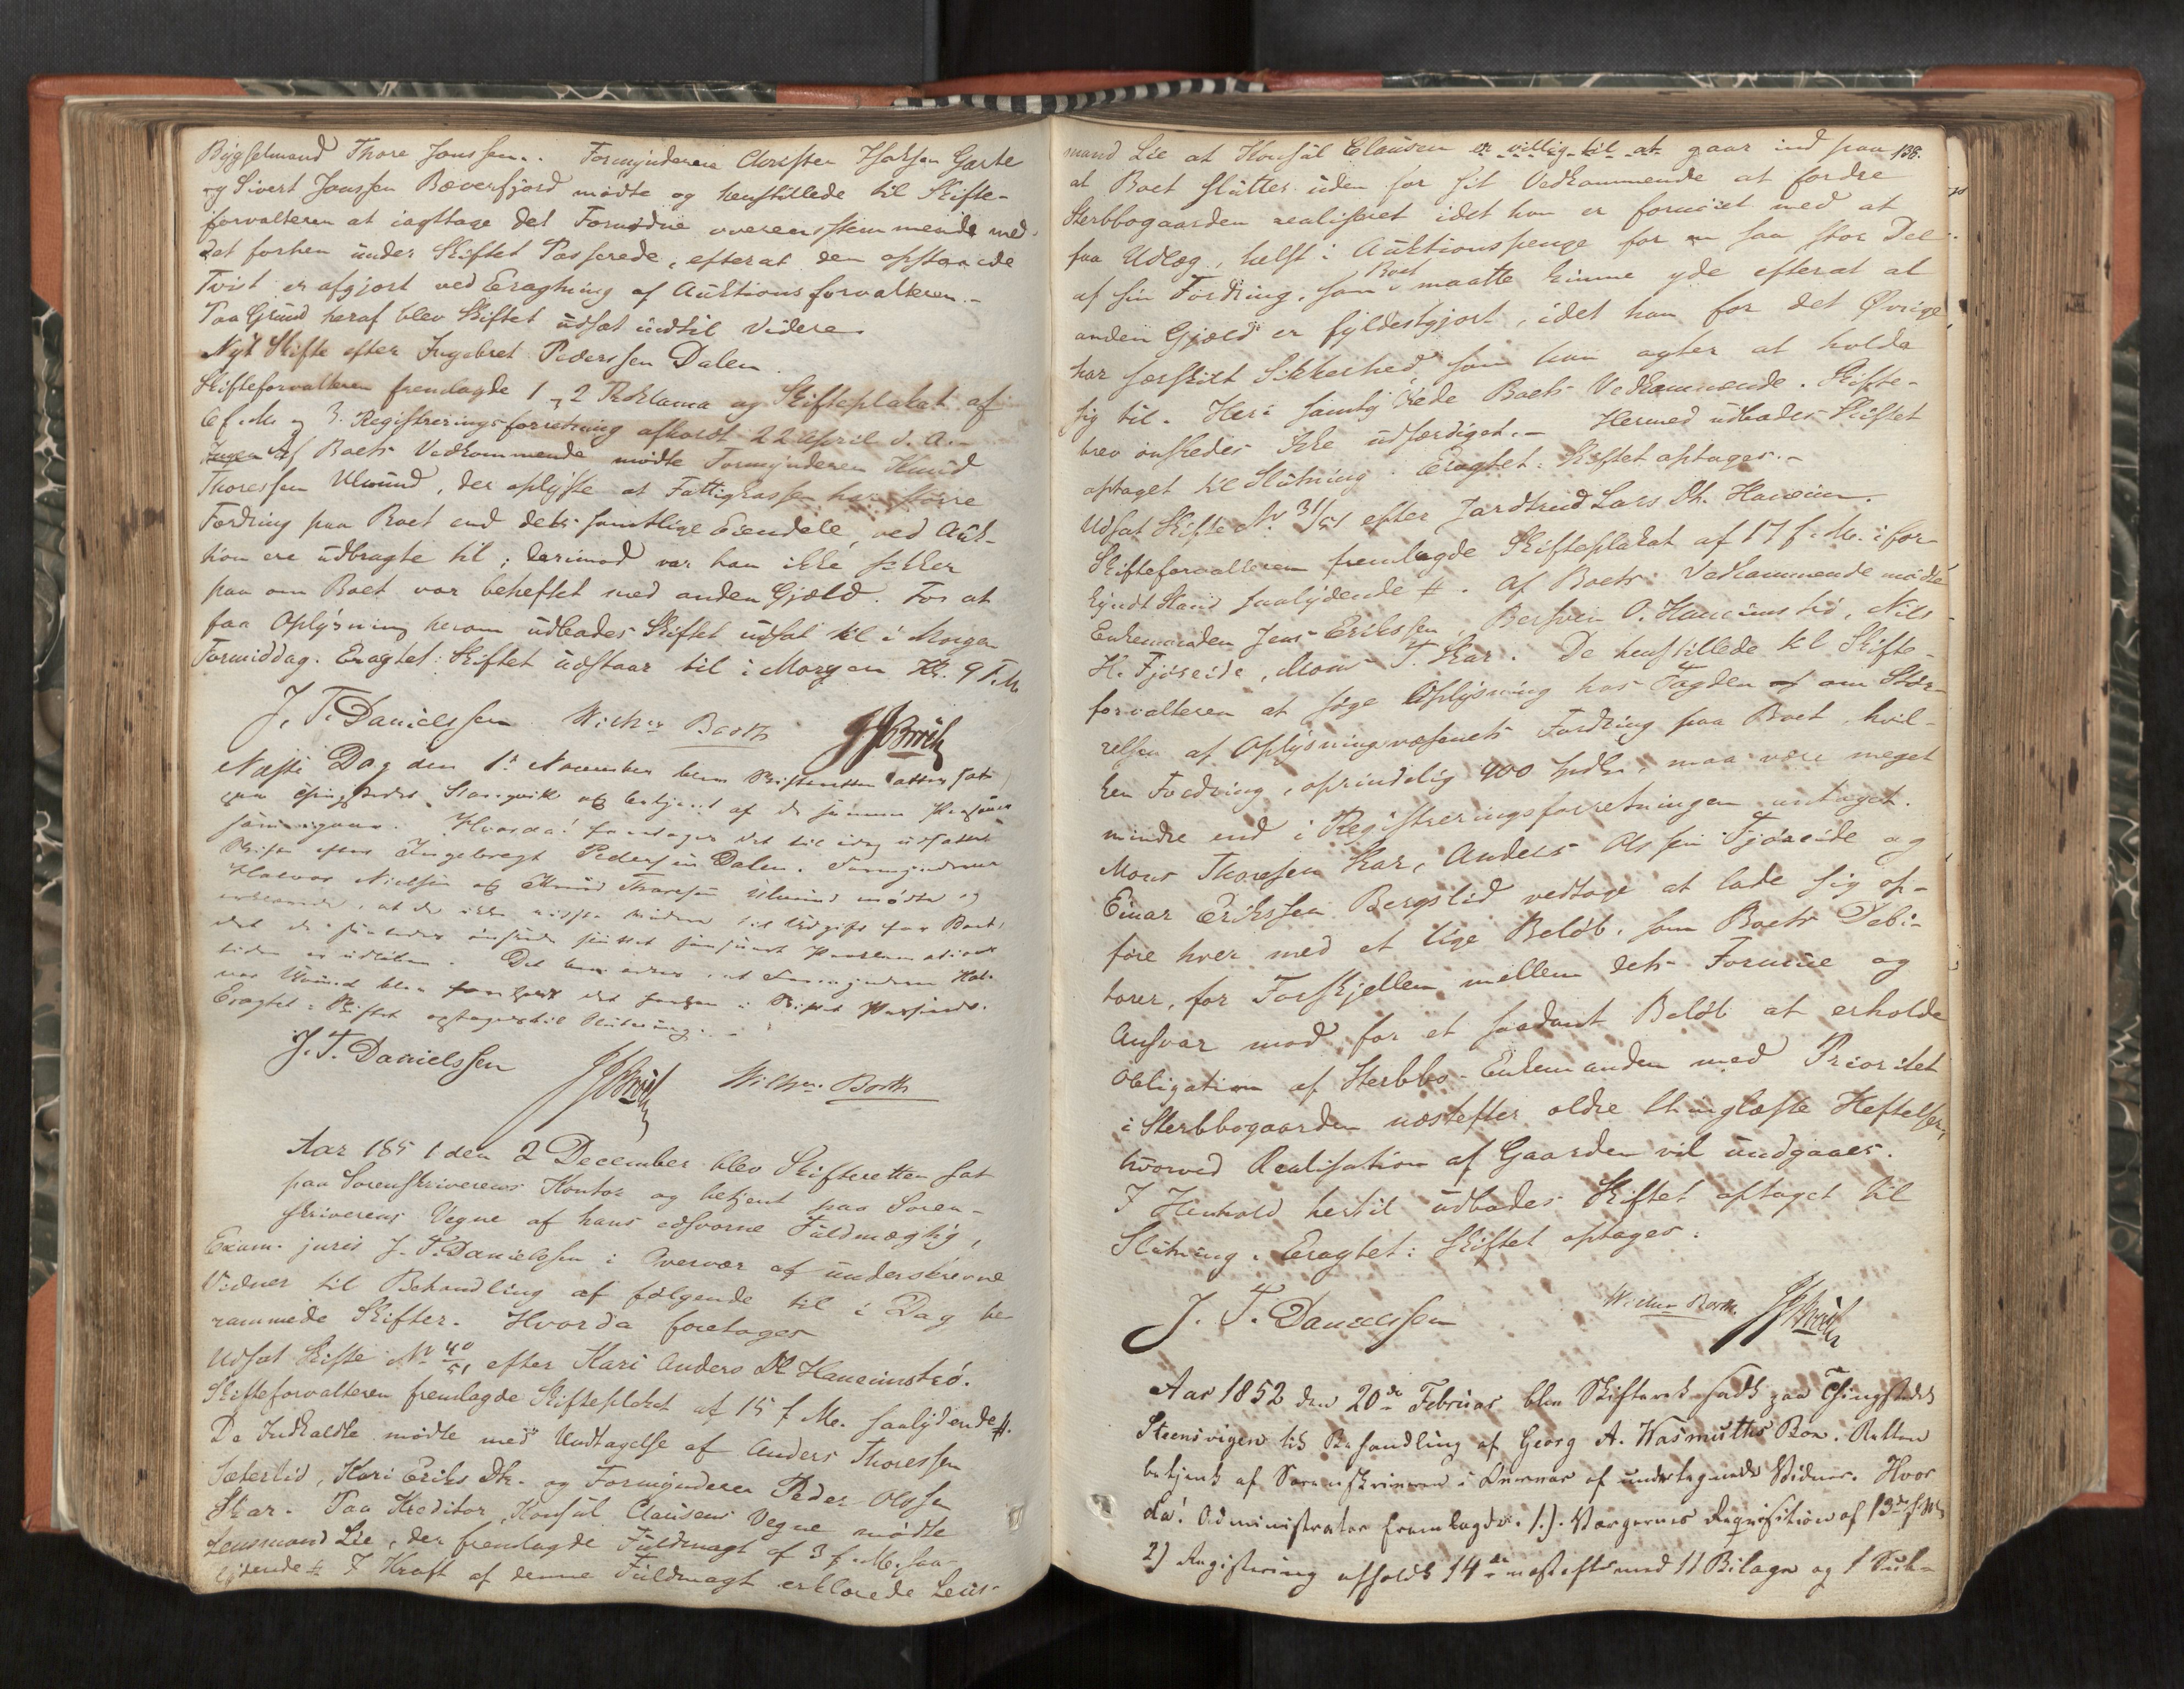 Bygselmand Thore Jonssen. Formynderne Christen Isaksen Garte
og Sivert Jonssen Bæverfjord mødte og henstillede til Skifte-
forvalteren at iagttage det Fornødne overensstemmende med
det forhen under Skiftet Passerede, efterat den opstaaede
Tvist er afgjort ved Eragtning af Auktionsforvalteren.-
Paa Grund heraf blev Skiftet udsat indtil Videre.
Nyt Skifte efter Ingebret Pederssen Dalen.
Skifteforvalteren fremlagde 1 2 Proklama og Skifteplakat af
6 f. M. og 3. Registreringsforretning afholdt 22 April d. A.-
Af Boets Vedkommende mødte Formynderen Knud
Thoressen Ulvund, der oplyste at Fattigkassen har større
Fordring paa Boet end dets samtlige Eiendele, ved Auk-
tion ere udbragte til; derimod var han ikke sikker
paa om Boet var beheftet med anden Gjæld. For at
faa Oplysning herom udbades Skiftet udsat til i Morgen
Formiddag. Eragtet: Skiftet udstaar til i Morgen Kl. 9 F.M.
J. T. Danielssen Wilhm Barth
Næste Dag den 1ste November blev Skifteretten atter sat
paa Thingstedet Stangvik og betjent af de samme Personer
som igaar. Hvorda! foretages det til idag udsatte
Skifte efter Ingebregt Pedersen Dalen. Formynderne
Halvor Nielsen og Knud Thoresen Ulvund mødte og
erklærede, at de ikke vidste videre til Udgift for Boet,
det de saaledes ønskede sluttet saasnart Proclamations
tiden er udløben. Det bemærkes, at Formynderen Hal-
vor Ulvund blev foreholdt det forhen i Skiftet Passerede.
Eragtet: Skiftet optages til Slutning.-
J. T. Danielssen
Wilhm. Barth
Aar 1851 den 2 December blev Skifteretten sat
paa Sorenskriverens Kontor og betjent paa Soren-
skriverens Vegne af hans edsvorne Fuldmægtig,
Exam. juris J. T. Danielssen i Overvær af underskrevne
Vidner til Behandling af følgende til i Dag be-
rammede Skifter. Hvorda foretages
Udsat Skifte No 40/51 efter Kari Anders Dt Haneimstrø.
Skifteforvalteren fremlagde Skifteplakat af 15 f. M. saalydende #.
De Indkaldte mødte med Undtagelse af Anders Thoressen
Sæterlid, Kari Eriks Dtr. og Formynderen Peder Olssen
Skar. Paa Kreditor, Konsul Clausens Vegne mødte
Lensmand Lie, der fremlagde Fuldmagt af 3 f. M. saa-
lydende # I Kraft af denne Fuldmagt erklærede Lens-
138.
mand Lie at Konsul Clausen er villig til at gaar ind paa
at Boet sluttes uden for sit Vedkommende at fordre
Sterbbogaarden realiseret idet han er fornøiet med at
faa Udlæg, helst i Auktionspenge for en saa stor Del
af sin Fordring, som Boet maatte kunne yde efterat al
anden Gjæld er fyldestgjort, idet han for det Øvrige
har særskilt Sikkerhed som han agter at holde
sig til. Heri samtykkede Boets Vedkommende. Skifte-
brev ønskedes ikke udfærdiget.- Hermed udbades Skiftet
optaget til Slutning. Eragtet: Skiftet optages.-
Udsat Skifte No 31/51 efter Jardtrud Lars Dt. Haneim.
Skifteforvalteren fremlagde Skifteplakat af 17 f. M. i for-
kyndt Stand saalydende #. Af Boets Vedkommende mødte
Enkemanden Jens Erikssen, Bersven O. Haneimstrø, Nils
H. Fjøseide, Mons T. Skar. De henstillede til Skifte-
forvalteren at søge Oplysning hos Fogden om Stør-
relsen af Oplysningsvæsenets Fordring paa Boet, hvil-
ken Fordring, oprindelig 400 Spdlr. maa være meget
mindre end i Registreringsforretningen antaget.
Mons Thoresen Skar, Anders Olssen Fjøseide og
Einar Erikssen Bergslid vedtage at lade sig op-
føre hver med et lige Beløb, som Boets Debi-
torer, for Forskjellen mellem dets Formue og
Ansvar mod for et saadant Beløb at erholde
Obligation af Sterbbo-Enkemanden med Prioritet
i Sterbbogaarden næstefter ældre thinglæste Heftelser,
hvorved Realisation af Gaarden vil undgaaes.
I Henhold hertil udbades Skiftet optaget til
Slutning. Eragtet: Skiftet optages.
J. T. Danielssen Wilhm Barth.
Aar 1852 den 20de Februar blev Skifteret holdt paa Thingstedet
Steensvigen til Behandling af Georg A. Wasmuths Boe. Retten
betjent af Sorenskriveren i Overvær af undertegnede Vidner. Hvor
da! Administrator fremlagde. 1.) Vurgernes Requisition af 13de f. M.
2) Registrering afholdt 14de næstefter med 11 Bilage og 1 Sub-